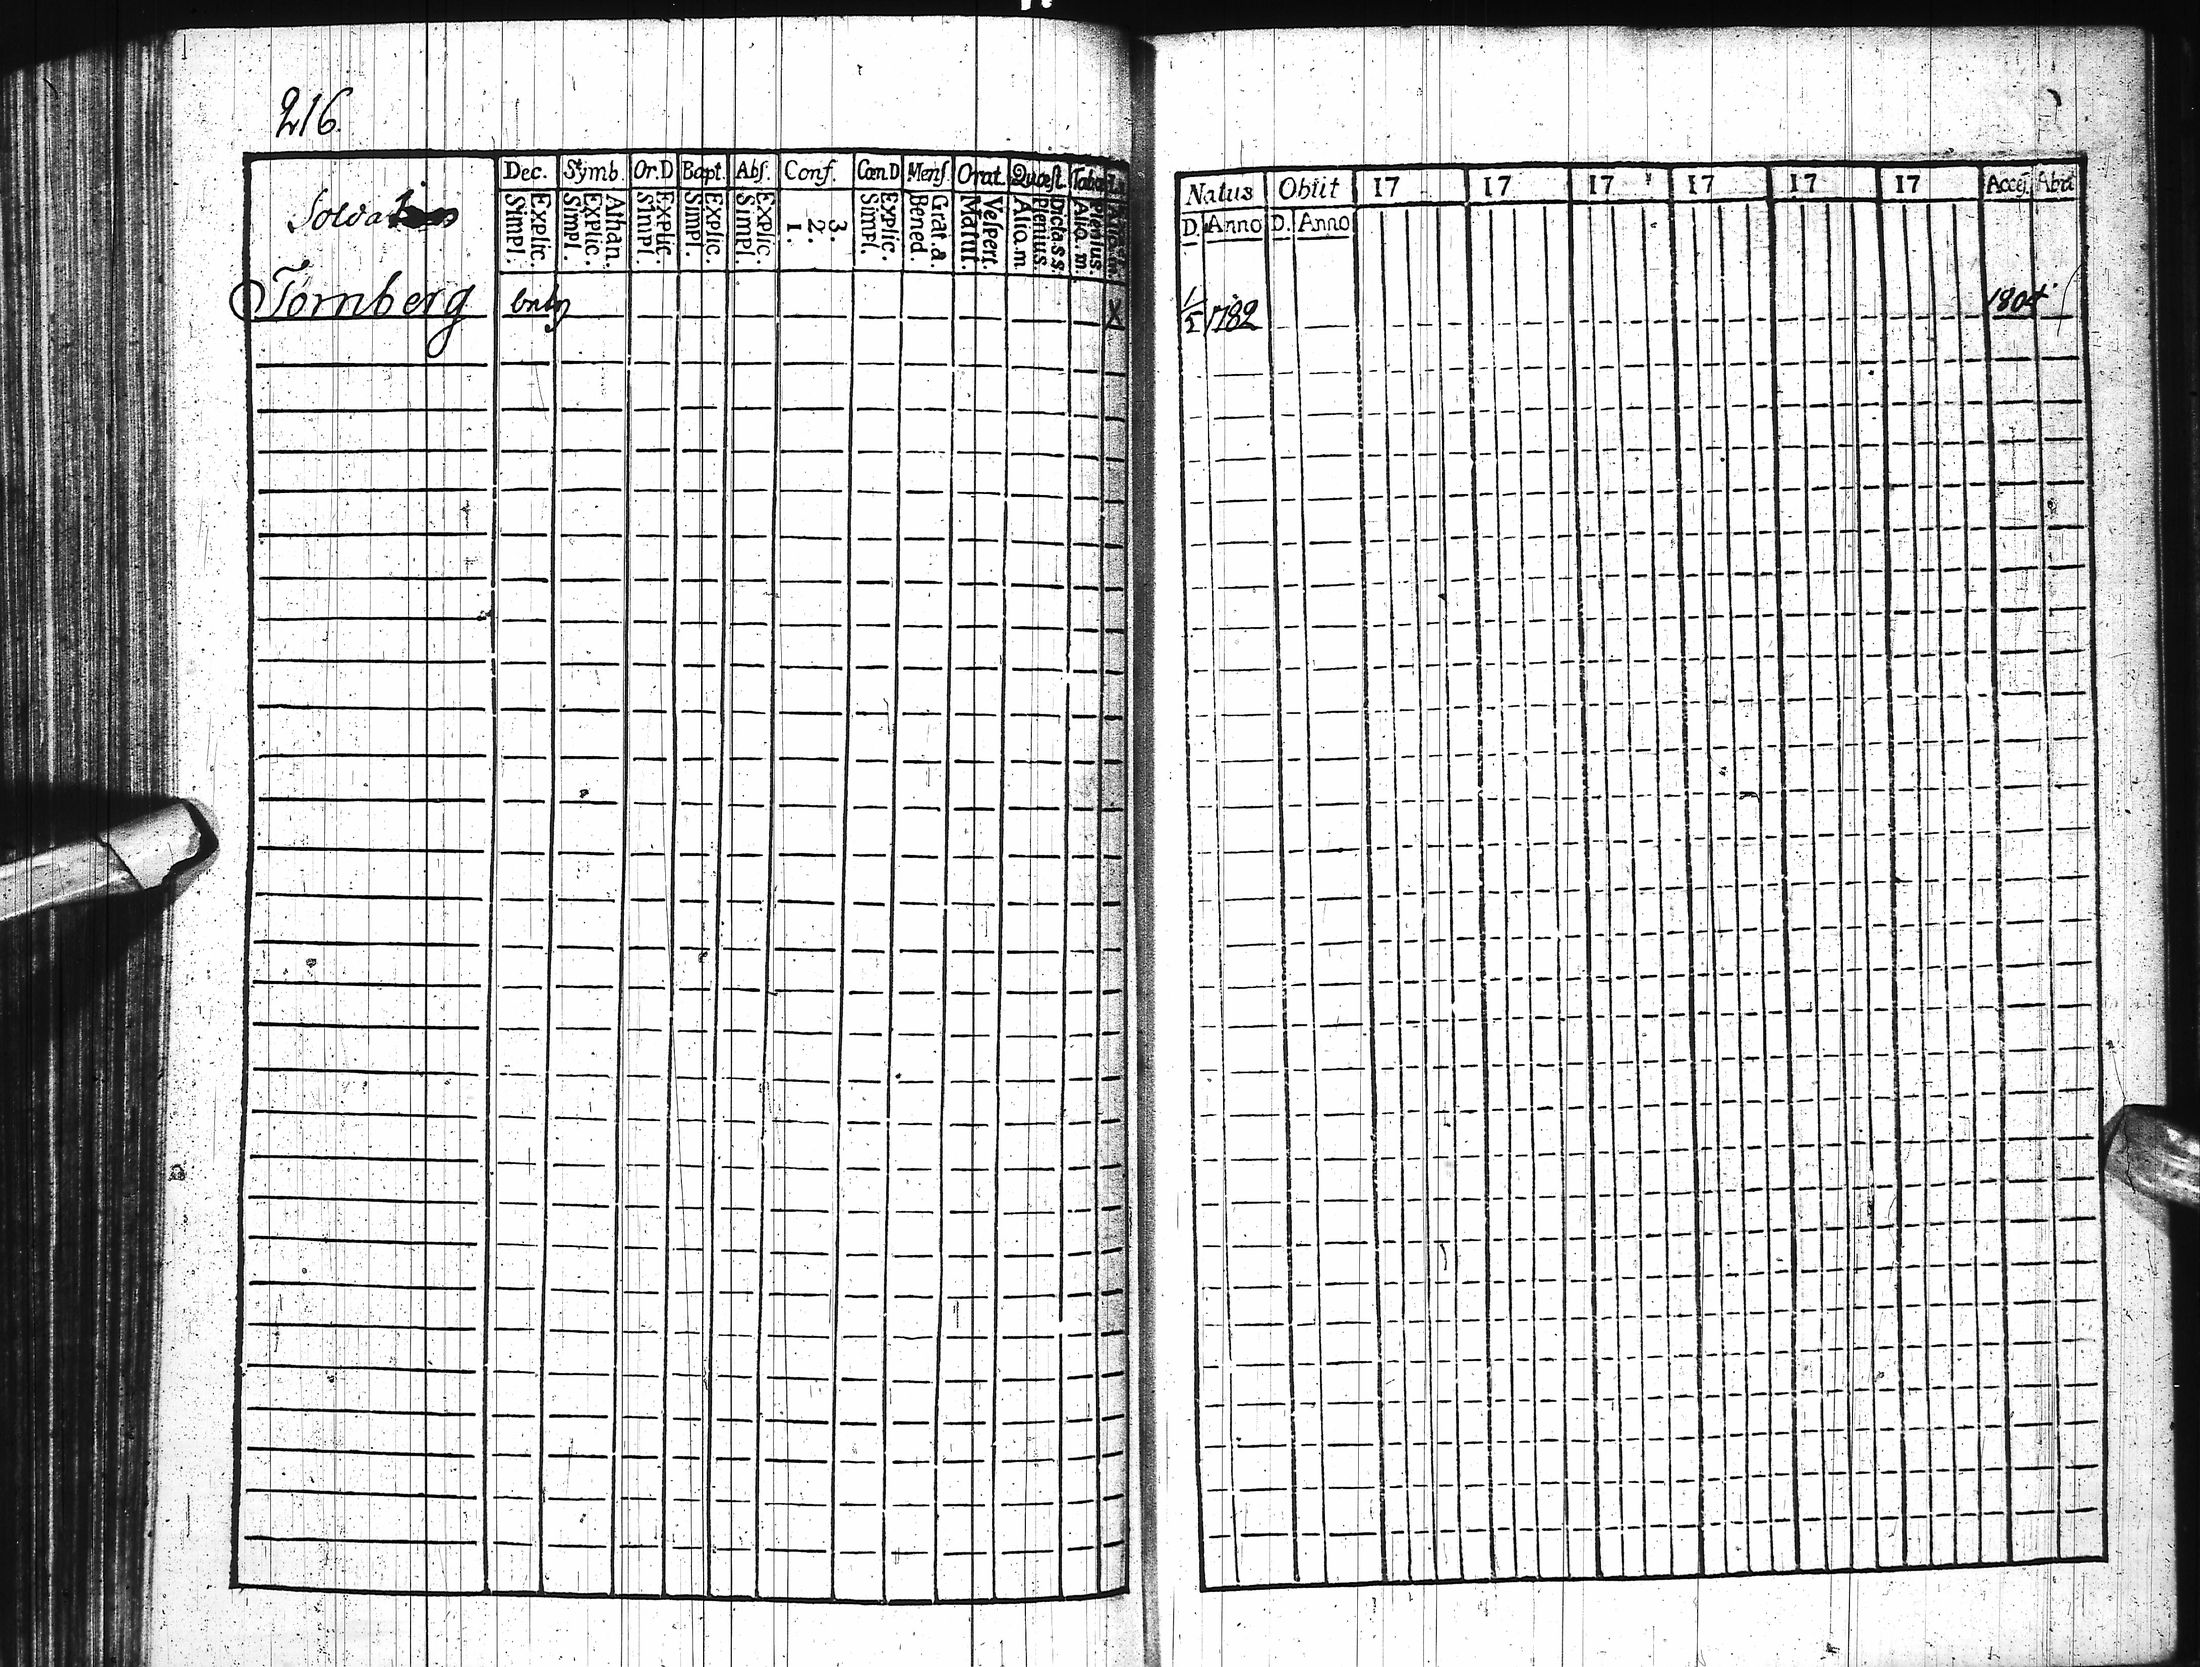 216.
Dec. Symb. Or.D Bapt. Abs. Conf. Cœn.D Mens. Orat. Quæst.
Soldat
Explic. Simpl. Athan. Explic. Simpl. Explic. Simpl. Explic. Simpl. Explic. Simpl. 3. 2. 1. Explic. Simpl. Grat.a. Bened. Vespert. Matut. Dicta s.s. plenius. Alio.m Plenius. Alio.m.
Törnberg
X
Natus Obiit 17 17 17 17 17 17 Acces. Abit
D. Anno D. Anno
1/5 1782 1804